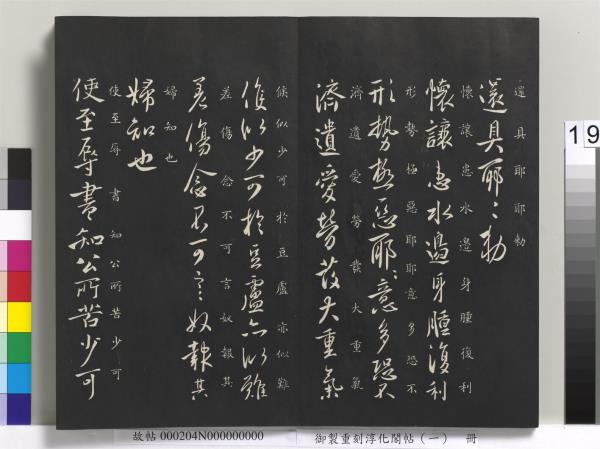 還具耶耶勅
還具耶〻勅
懷讓患水邊身腫復利
懷讓患水邊身腫復利
形勢極惡耶耶意多恐不
形勢極惡耶〻意多恐不
濟遺愛勞發大重氣
濟遺愛勞發大重氣
候似少可於豆盧亦似難
候似少可於豆盧亦似難
差傷念不可言奴報其
差傷念不可言奴報其
婦知也
婦知也
使至辱書知公所苦少可
使至辱書知公所苦少可
19
故帖 000204N000000000 御製重刻淳化閣帖（一） 冊